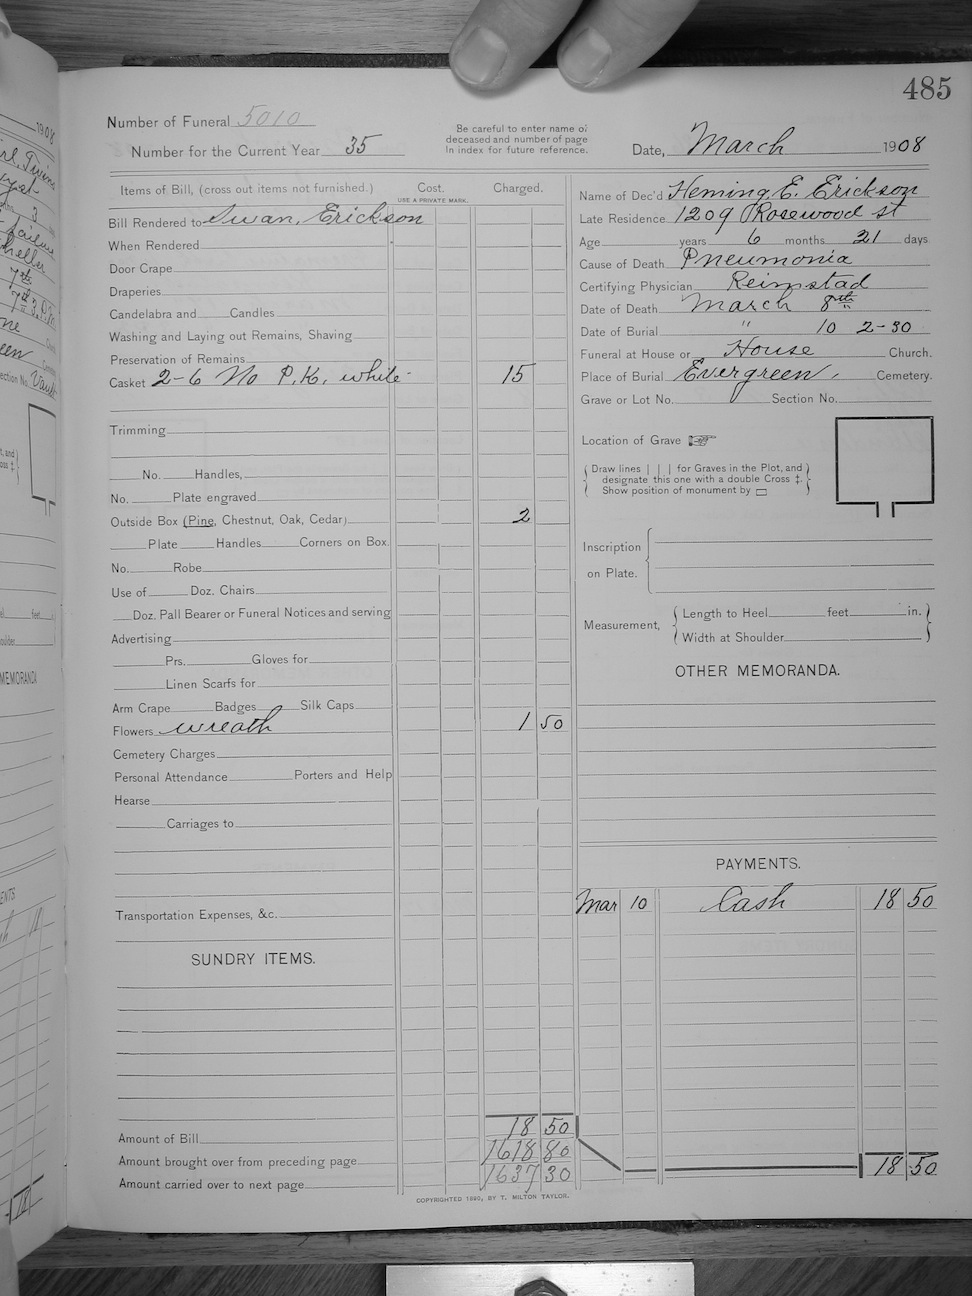 485
Number of Funeral 5010
Number for the Current Year 35
Be careful to enter name of
deceased and number of page
In index for future reference.
Date, March 1908
Items of Bill, (cross out items not furnished.) Cost. Charged.
USE A PRIVATE MARK.
Bill Rendered to Swan, Erickson
When Rendered
Door Crape
Draperies
Candelabra and Candles
Washing and Laying out Remains, Shaving
Preservation of Remains
Casket 2-6 No P.K. white 15
Trimming
No. Handles,
No. Plate engraved
Outside Box (Pine, Chestnut, Oak, Cedar) 2
Plate Handles Corners on Box.
No. Robe
Use of Doz. Chairs
Doz. Pall Bearer or Funeral Notices and serving
Advertising
Prs. Gloves for
Linen Scarfs for
Arm Crape Badges Silk Caps
Flowers wreath 1 50
Cemetery Charges
Personal Attendance Porters and Help
Hearse
Carriages to
Transportation Expenses, &c.
SUNDRY ITEMS.
Amount of Bill 18 50
Amount brought over from preceding page 1618 80
Amount carried over to next page 1637 30
COPYRIGHTED 1890, BY T. MILTON TAYLOR.
Name of Dec'd Heming E. Erickson
Late Residence 1209 Rosewood st
Age years 6 months 21 days
Cause of Death Pneumonia
Certifying Physician Reimstad
Date of Death March 8th
Date of Burial " 10 2-30
Funeral at House or House Church.
Place of Burial Evergreen, Cemetery.
Grave or Lot No. Section No.
Location of Grave ☞
Draw lines | | | for Graves in the Plot, and
designate this one with a double Cross ‡.
Show position of monument by ▭
Inscription
on Plate.
Measurement,
Length to Heel feet in.
Width at Shoulder
OTHER MEMORANDA.
PAYMENTS.
Mar 10 Cash 18 50
18 50